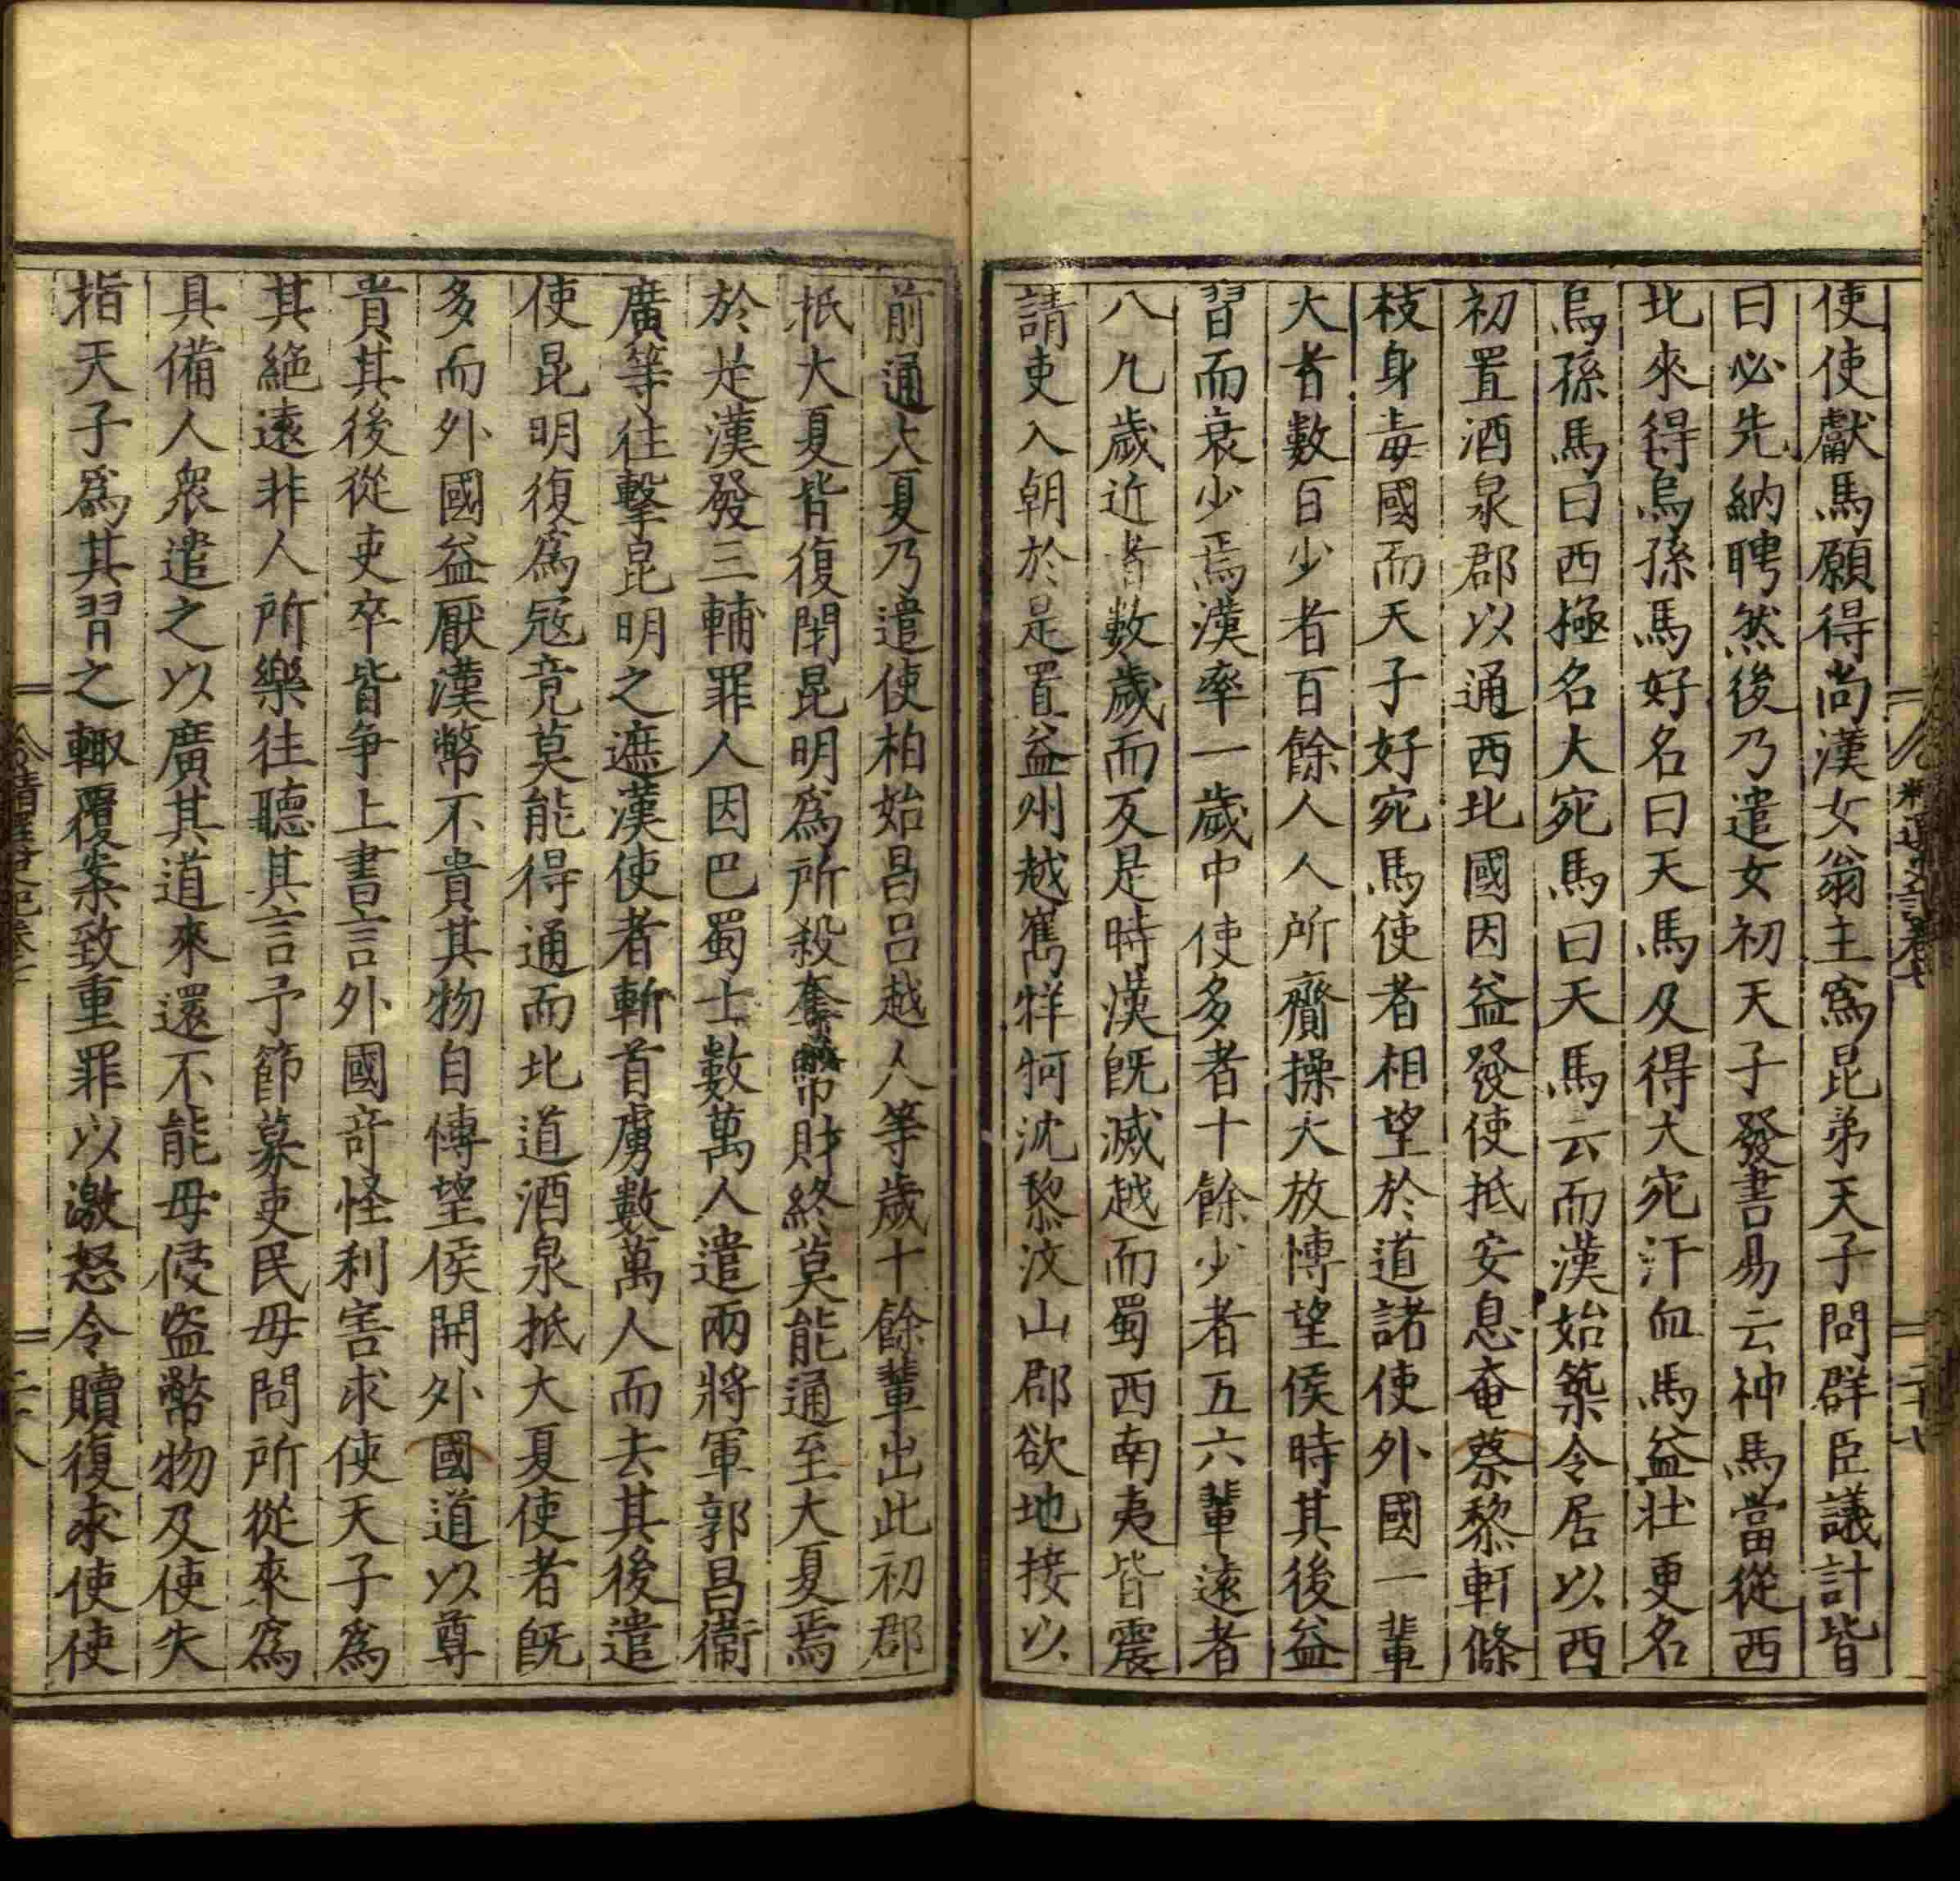 使使獻馬願得尚漢女翁主爲昆弟天子問群臣議計皆
曰必先納聘然後乃遣女初天子發書易云神馬當從西
北來得烏孫馬好名曰天馬及得大宛汗血馬益壯更名
烏孫馬曰西極名大宛馬曰天馬云而漢始築令居以西
初置酒泉郡以通西北國因益發使抵安息奄蔡黎軒條
枝身毒國而天子好宛馬使者相望於道諸使外國一輩
大者數百少者百餘人人所齎操大放博望侯時其後益
習而衰少焉漢率一歲中使多者十餘少者五六輩遠者
八九歲近者數歲而反是時漢旣滅越而蜀西南夷皆震
請吏入朝於是置益州越嶲牂牁沈黎汶山郡欲地接以
前通大夏乃遣使柏始昌呂越人等歲十餘輩出此初郡
抵大夏皆復閉昆明爲所殺奪幣財終莫能通至大夏焉
於是漢發三輔罪人因巴蜀士數萬人遣兩將軍郭昌衞
廣等往擊昆明之遮漢使者斬首虜數萬人而去其後遣
使昆明復爲寇竟莫能得通而北道酒泉抵大夏使者旣
多而外國益厭漢幣不貴其物自博望侯開外國道以尊
貴其後從吏卒皆爭上書言外國奇怪利害求使天子爲
其絶遠非人所樂往聽其言予節募吏民毋問所從來爲
具備人衆遣之以廣其道來還不能毋侵盜幣物及使失
指天子爲其習之輙覆案致重罪以激怒令贖復求使使